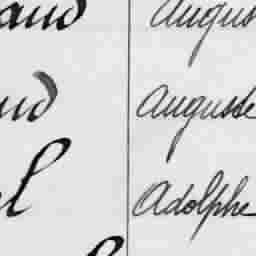 aud Augus
ud Auguste
l Adolphe